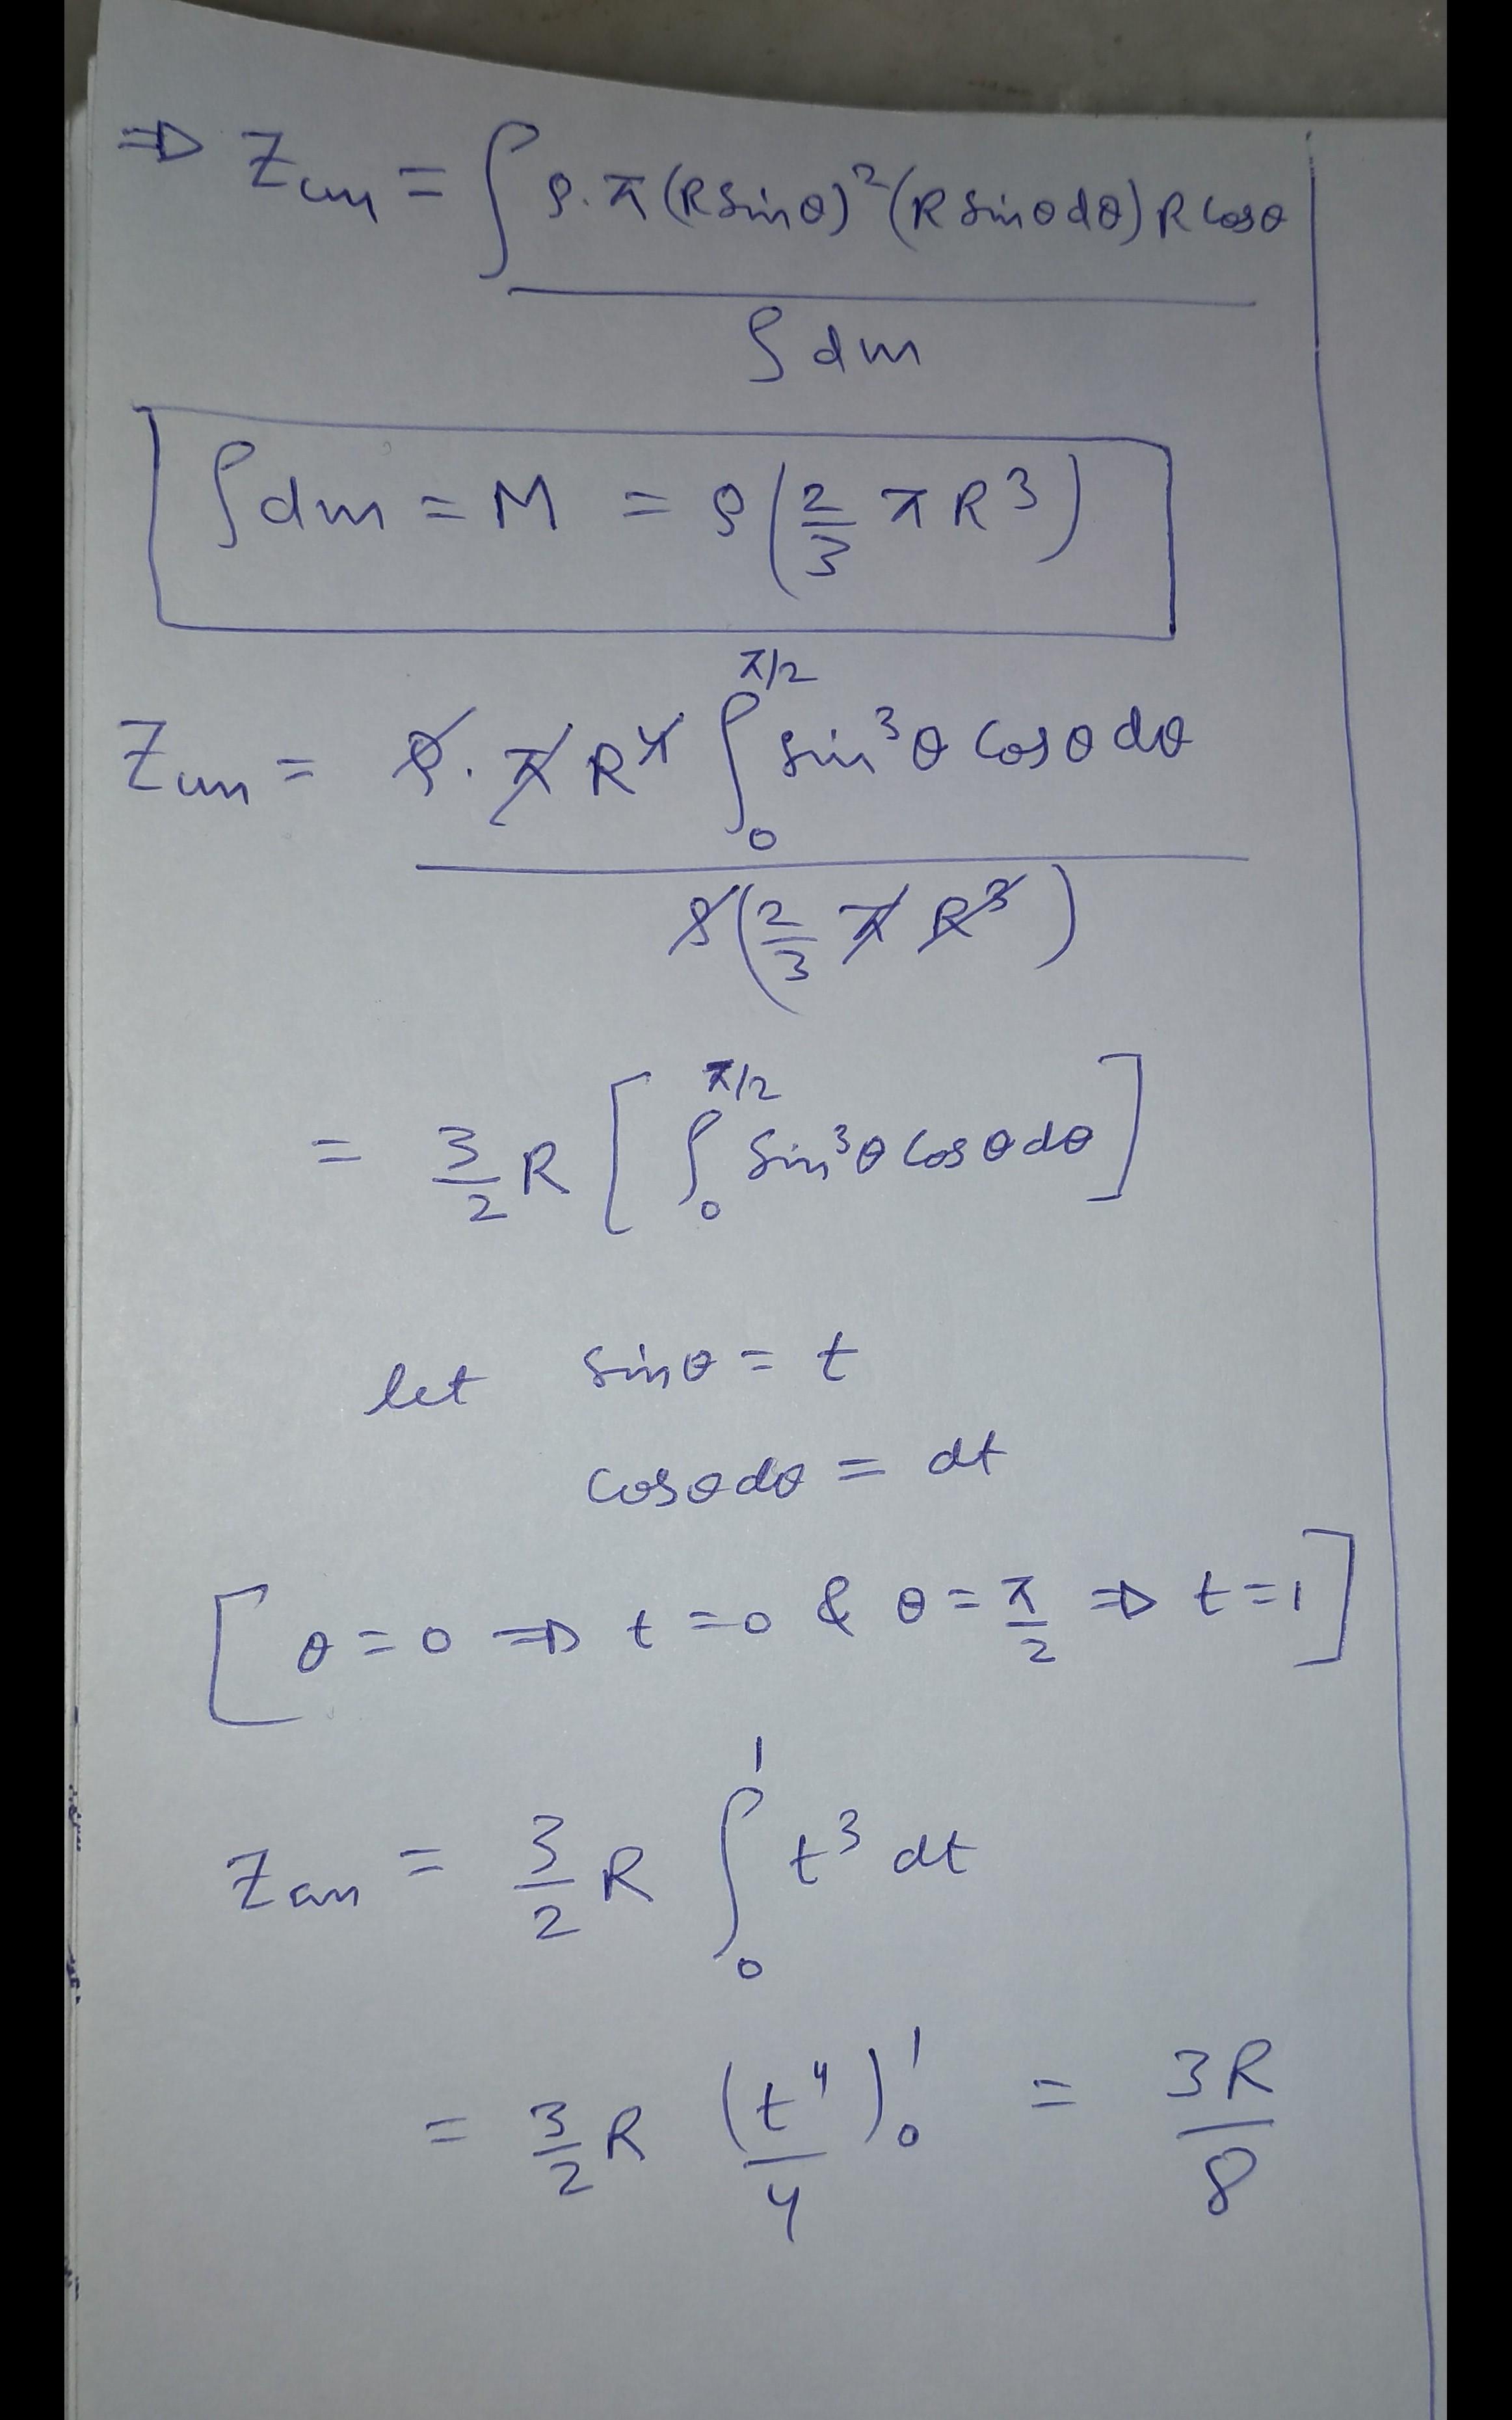 ⇒ Zcm = ∫ ρ.π(R sinθ)²(R sinθdθ) R cosθ
∫dm
∫dm = M = ρ(2/3 πR³)
π/2
Zcm = ρ.πR⁴ ∫ sin³θ cosθdθ
0
ρ(2/3 πR³)
π/2
= 3/2 R [ ∫ sin³θ cosθdθ ]
0
let sinθ = t
cosθdθ = dt
[θ=0 ⇒ t=0 & θ=π/2 ⇒ t=1]
1
Zcm = 3/2 R ∫ t³ dt
0
= 3/2 R (t⁴/4)₀¹ = 3R/8